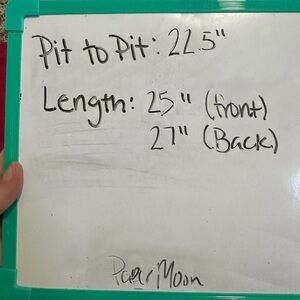 Pit to Pit: 22.5"
Length: 25" (front)
27" (Back)
Paper Moon